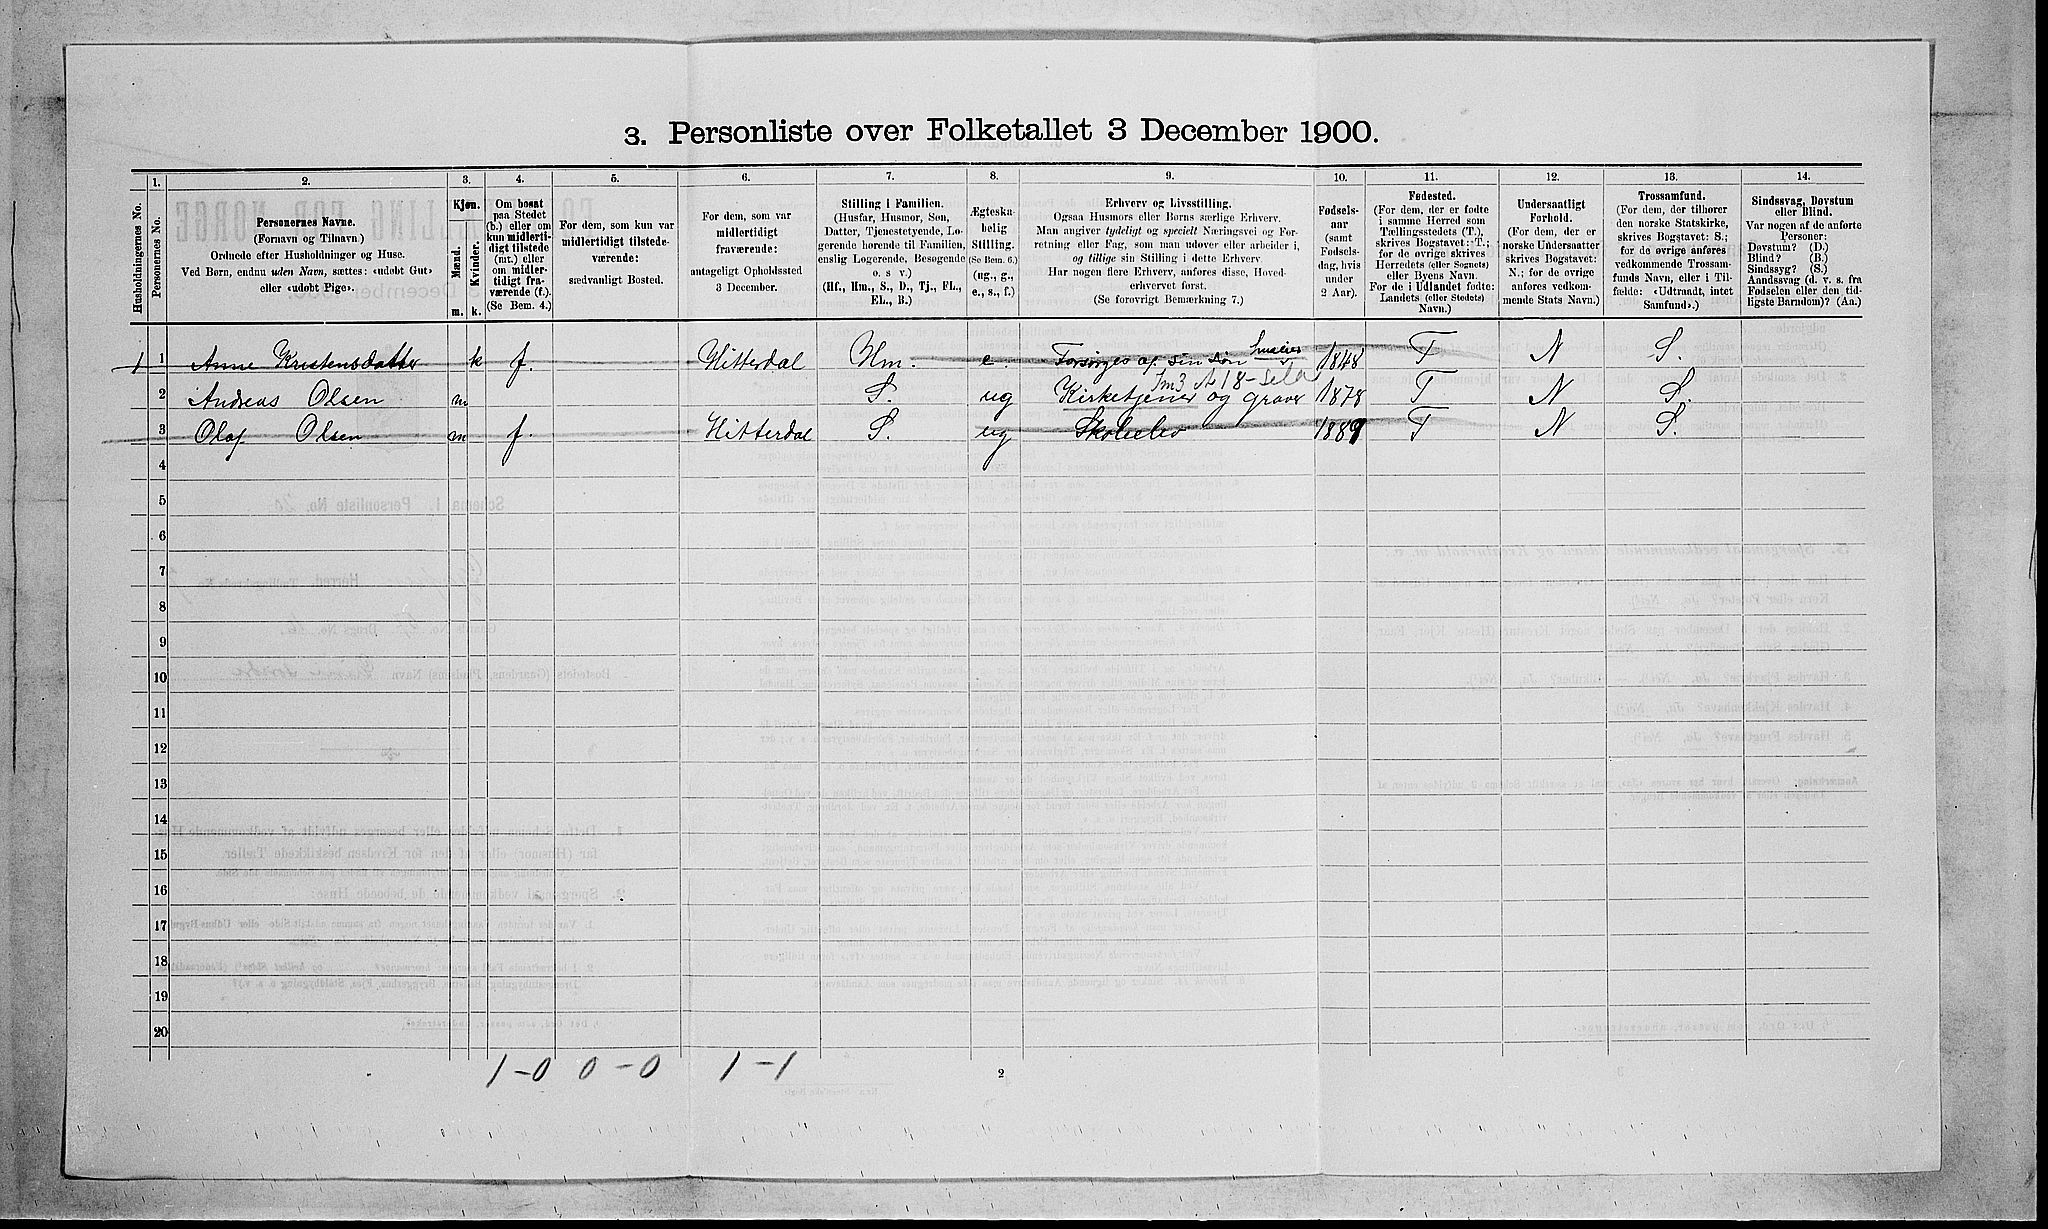 3. Personliste over Folketallet 3 December 1900.
1. 2. 3. 4. 5. 6. 7. 8. 9. 10. 11. 12. 13. 14.
Husholdningernes No.
Personernes No.
Personernes Navne.
(Fornavn og Tilnavn.)
Ordnede efter Husholdninger og Huse.
Ved Børn, endnu uden Navn, sættes: «udøbt Gut»
eller «udøbt Pige».
Kjøn.
Mænd.
Kvinder.
m. k.
Om bosat
paa Stedet
(b.) eller om
kun midlerti-
digt tilstede
(mt.) eller
om midler-
tidigt fra-
værende (f.).
(Se Bem. 4.)
For dem, som kun var
midlertidigt tilstede-
værende:
sædvanligt Bosted.
For dem, som var
midlertidigt
fraværende:
antageligt Opholdssted
3 December.
Stilling i Familien.
(Husfar, Husmor, Søn,
Datter, Tjenestetyende, Lo-
gerende hørende til Familien,
enslig Logerende, Besøgende
o. s. v.)
(Hf., Hm., S., D., Tj., FL.,
EL., B.)
Ægteska-
belig
Stilling.
(Se Bem. 6.)
(ug., g.,
e., s., f.)
Erhverv og Livsstilling.
Ogsaa Husmors eller Børns særlige Erhverv.
Man angiver tydeligt og specielt Næringsvei og For-
retning eller Fag, som man udøver eller arbeider i,
og tillige sin Stilling i dette Erhverv.
Har nogen flere Erhverv, anføres disse, Hoved-
erhvervet først.
(Se forøvrigt Bemærkning 7.)
Fødsels-
aar
(samt
Fødsels-
dag, hvis
under
2 Aar).
Fødested.
(For dem, der er fødte
i samme Herred som
Tællingsstedets (T.),
skrives Bogstavet: T.;
for de øvrige skrives
Herredets (eller Sognets)
eller Byens Navn.
For de i Udlandet fødte:
Landets (eller Stedets)
Navn.)
Undersaatligt
Forhold.
(For dem, der er
norske Undersaatter
skrives Bogstavet:
N.; for de øvrige
anføres vedkom-
mende Stats Navn.)
Trossamfund.
(For dem, der tilhører
den norske Statskirke,
skrives Bogstavet: S.;
for de øvrige anføres
vedkommende Trossam-
funds Navn, eller i Til-
fælde: «Udtraadt, intet
Samfund».)
Sindssvag, Døvstum
eller Blind.
Var nogen af de anførte
Personer:
Døvstum? (D.)
Blind? (B.)
Sindssyg? (S.)
Aandssvag (d. v. s. fra
Fødselen eller den tid-
ligste Barndom)? (Aa.)
1 1 Anne Kristensdatter k f. Hitterdal Hm. e. Forsørges af sin søn 1848 T N S.
2 Andreas Olsen m S. ug Kirketjener og graver 1878 T N S.
3 Olaf Olsen m f. Hitterdal S. ug Skoleelev 1889 T N S.
4
5
6
7
8
9
10
11
12
13
14
15
16
17
18
19
20
1 – 0 0 – 0 1 – 1
2